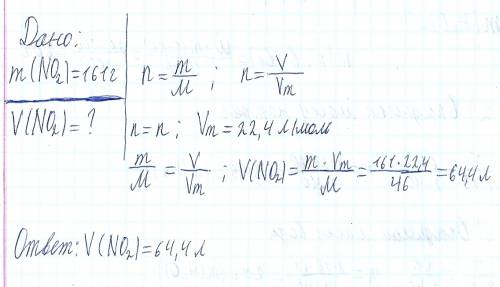 Дано:
m(NO₂)=161г
V(NO₂)=?
n=m/M ; n=V/Vm
n=n ; Vm=22,4 л/моль
m/M = V/Vm ; V(NO₂)=m·Vm/M=161·22,4/46=64,4л
Ответ: V(NO₂)=64,4л